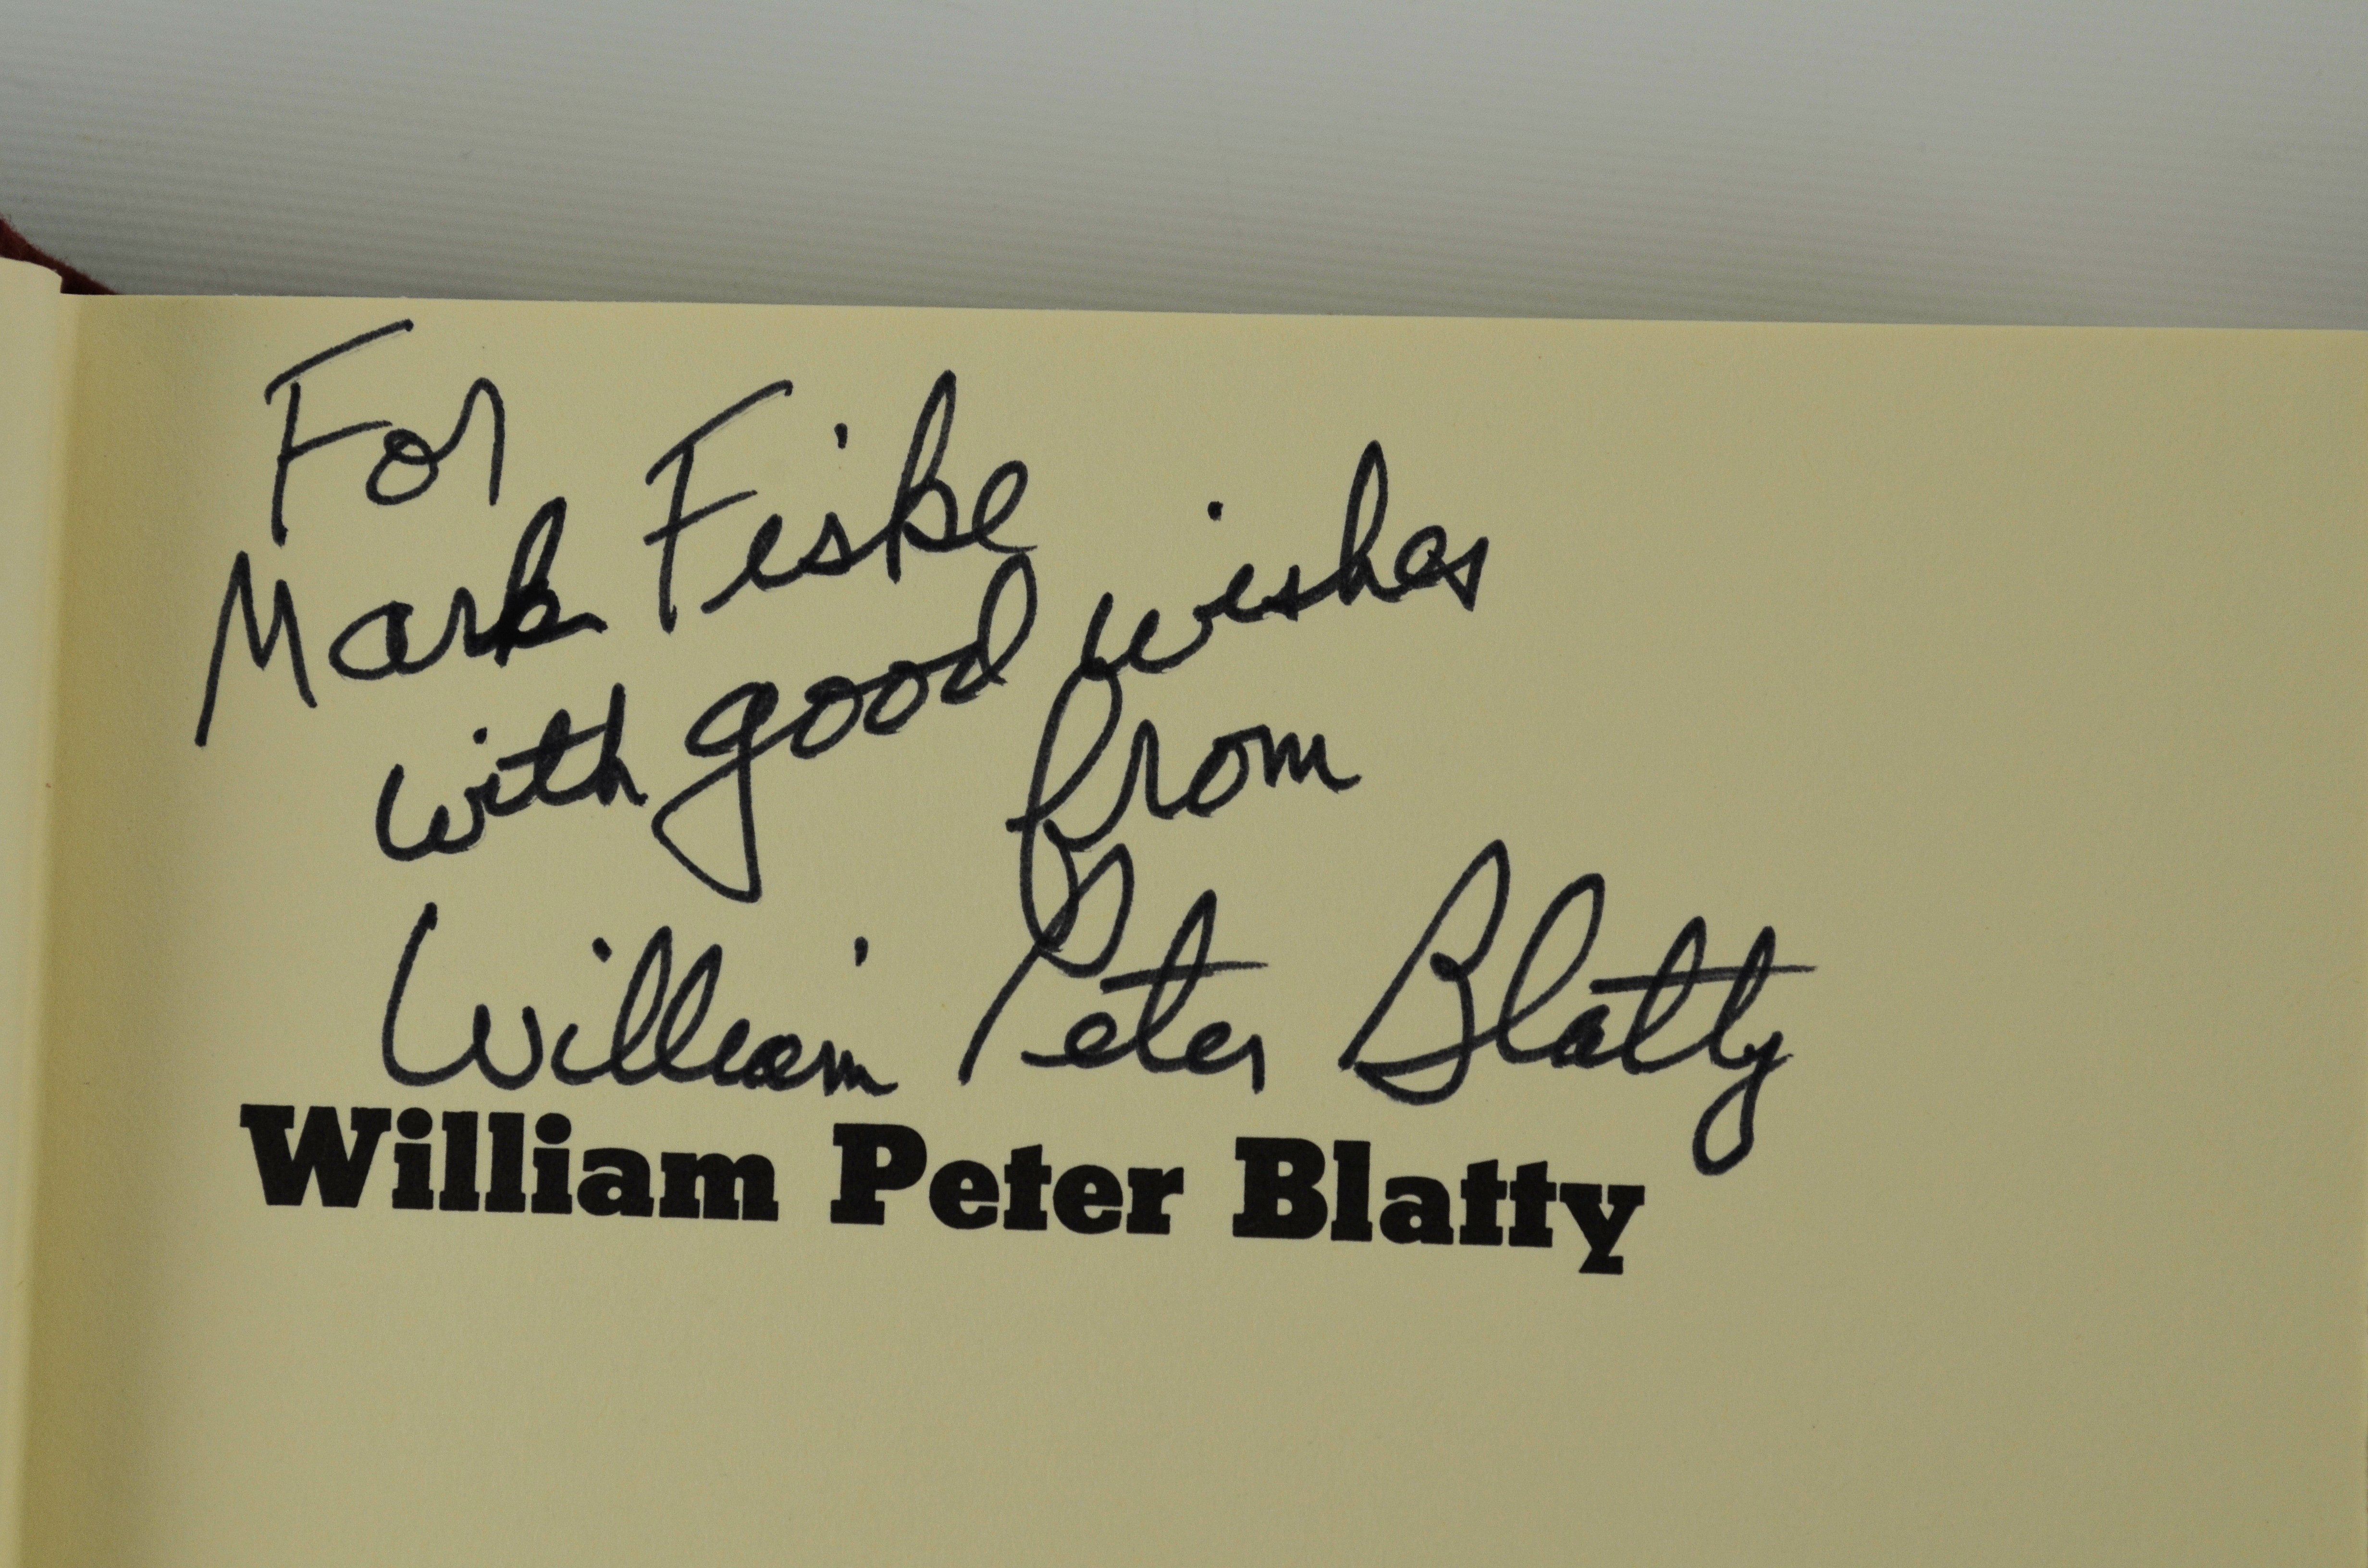 For
Mark Fiske
with good wishes
from
William Peter Blatty
William Peter Blatty